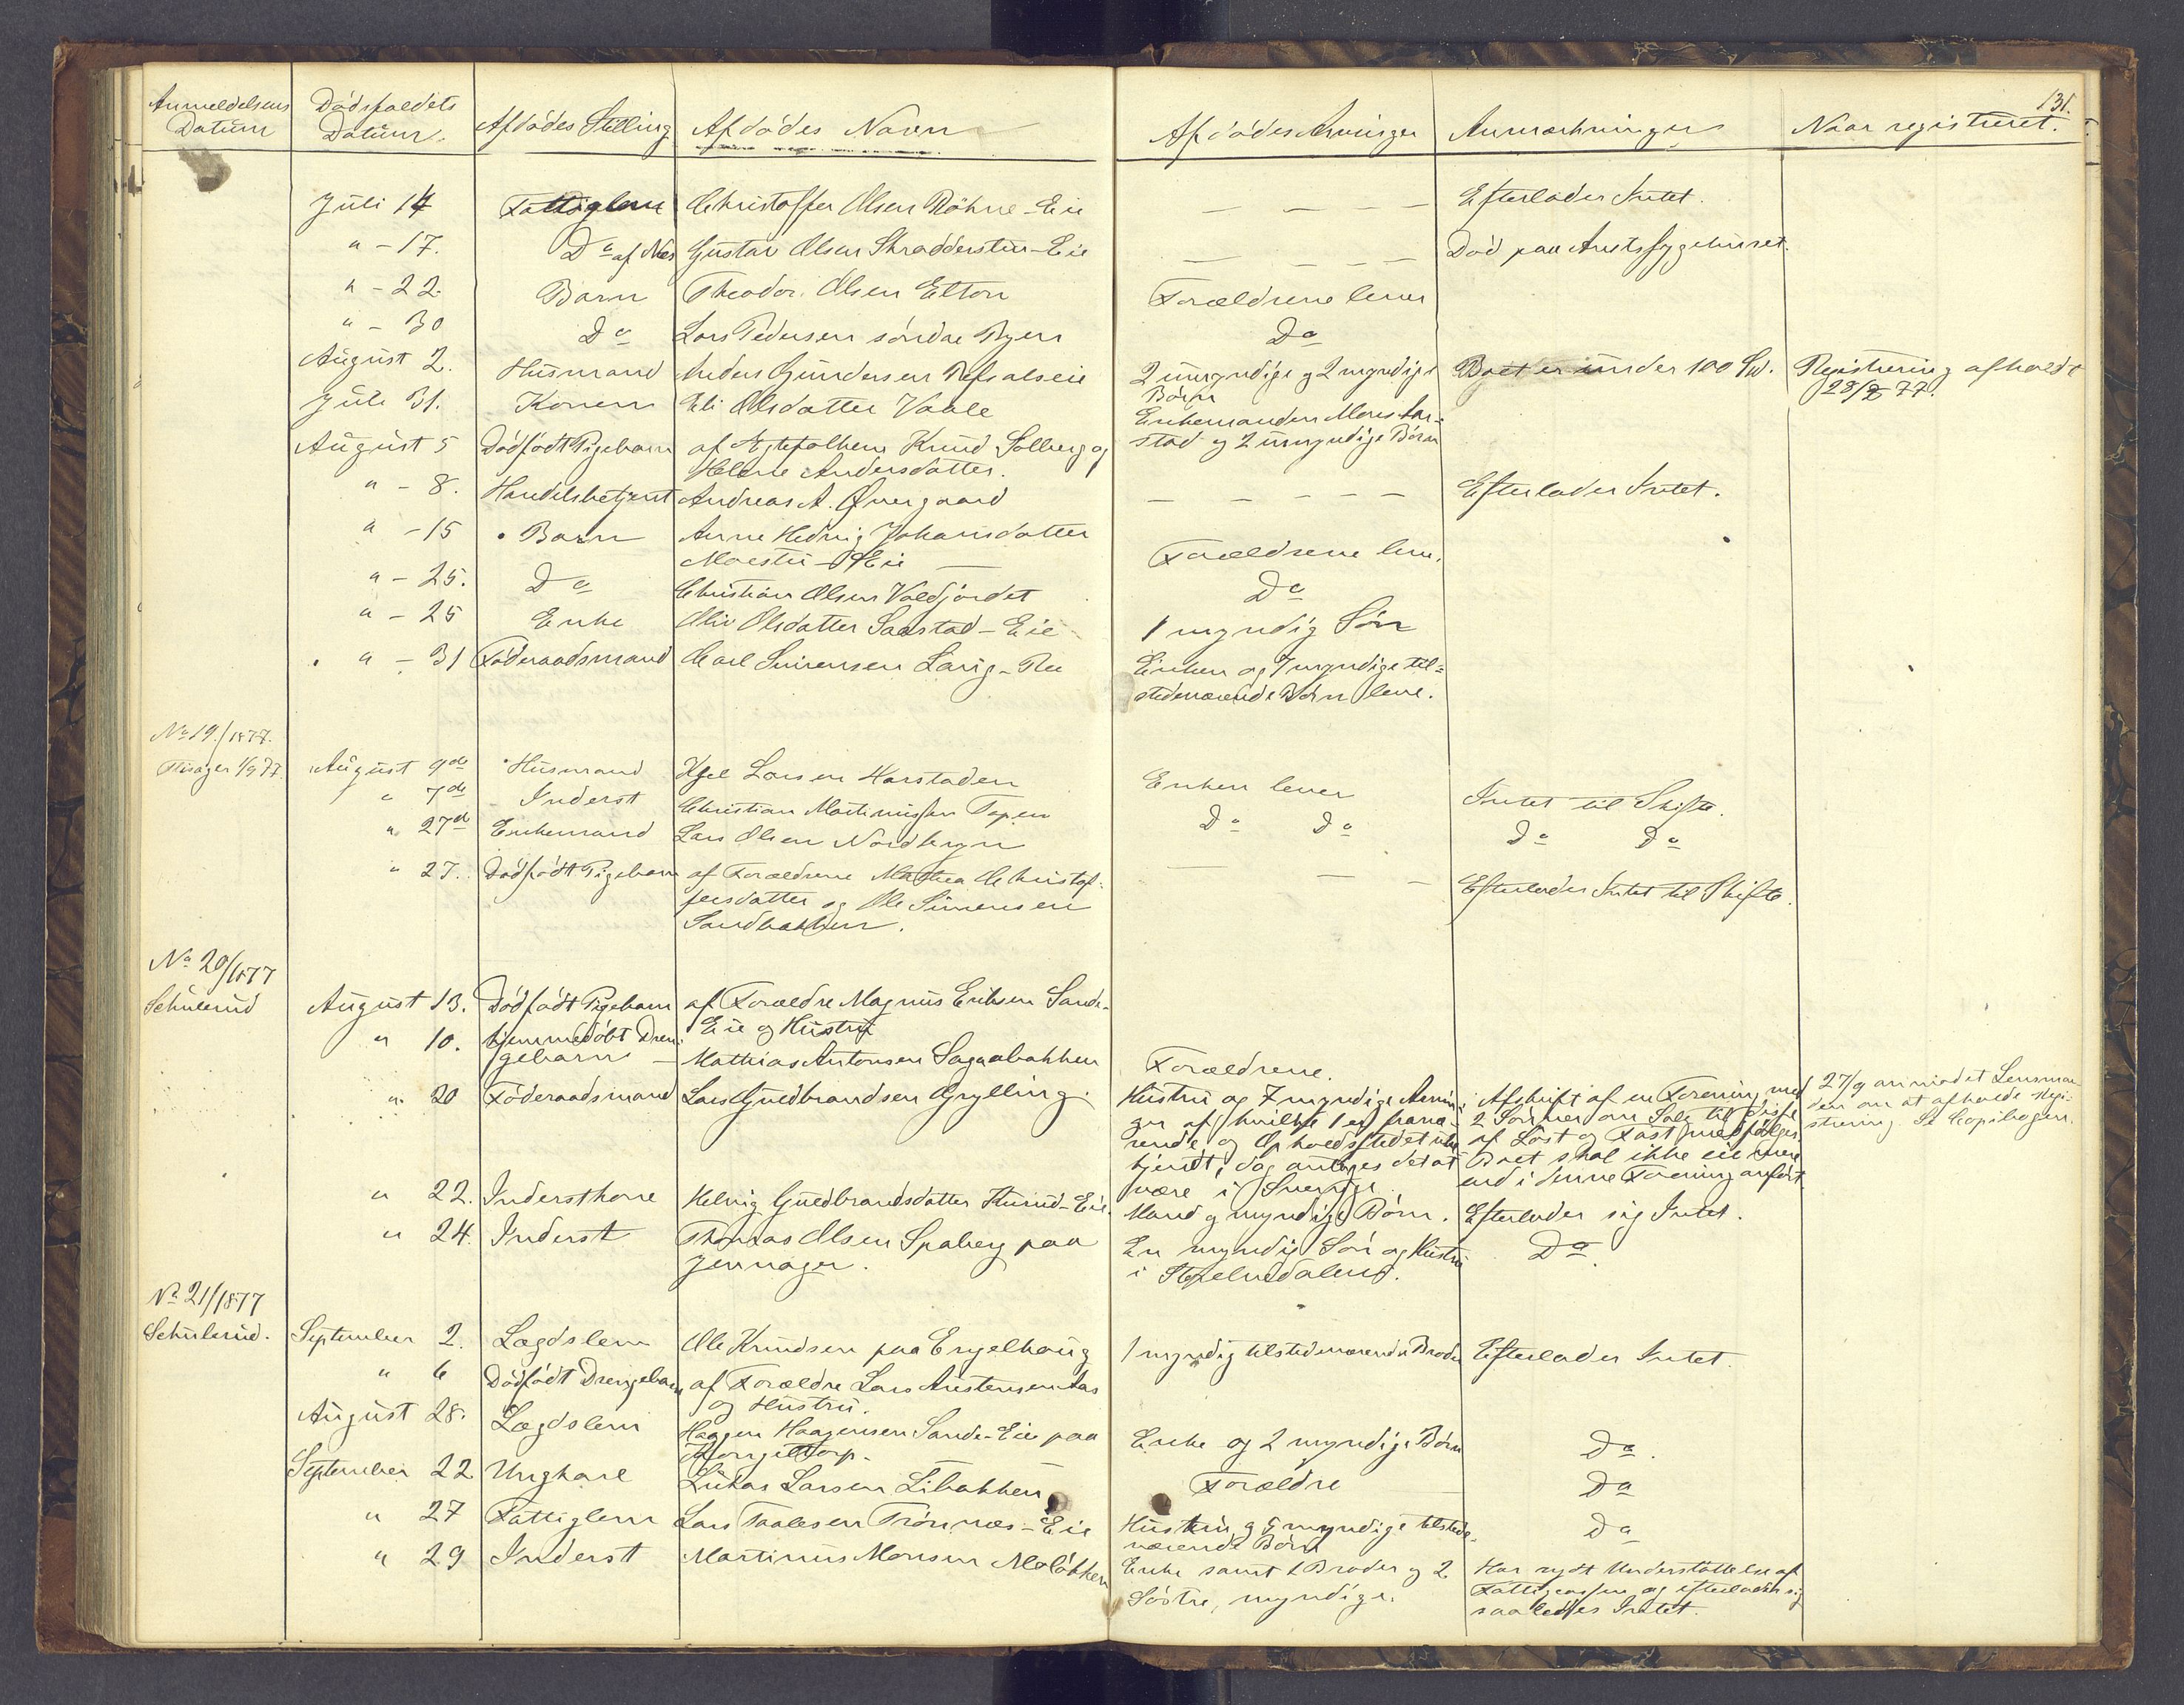 131.
Anmeldelsens Datum | Dödsfaldets Datum. | Afdödes Stilling | Afdödes Navn | Afdödes Arvinger | Anmærkninger | Naar registreret.
Juli 14 | Fattiglem | Christoffer Olsen Röhne-Eie | — — — — | Efterlader Intet.
" - 17. | Do af Næs | Gustav Olsen Skradderstuen-Eie | — — — — | Död paa Amtssygehuset.
" - 22. | Barn | Theodor Olsen Elton | Forældrene lever
" - 30 | Do | Lars Pedersen söndre Ryen | Do
August 2. | Husmand | Anders Gundersen Refsalseie | 2 umyndige og 2 myndige | Boet er under 100 Spd. | Registrering afholdt
Börn | 28/8 77.
Juli 31. | Konen | Eli Olsdatter Vaale | Enkemanden Mons Aar-
stad og 2 umyndige Börn
August 5 | Dödfödt Pigebarn | af Egtefolkene Knud Solberg og
Helene Andersdatter.
" - 8. | Handelsbetjent | Andreas A. Övergaard | — — — — — | Efterlader Intet.
" - 15 | Barn | Anne Hedvig Johansdatter
Moestu-Eie — | Forældrene leve.
" - 25. | Do | Christian Olsen Voldjordet | Do
" - 25 | Enke | Oliv Olsdatter Saastad-Eie | 1 myndig Sön
" - 31 | Föderaadsmand | Carl Simensen Lang-Ree | Enken og 7 myndige til-
stedeværende Börn leve.
No 19./1877.
Flisager 1/9 77. | August 9de | Husmand | Kjel Larsen Harstaden | Enken lever | Intet til Skifte.
" 7de | Inderst | Christian Martinussen Topen | Do Do | Do Do
" 27de | Enkemand | Lars Olsen Nordbergn
" 27. | Dödfödt Pigebarn | af Forældrene Mathea Christof-
fersdatter og Ole Simensen
Sandbakken. | — — — | Efterlader Intet til Skifte.
No 20/1877
Schulerud | August 13. | Dödfödt Pigebarn | af Forældre Magnus Eriksen Sande-
Eie og Hustru
" 10. | hjemmedöbt Dren-
gebarn — | Mathias Antonsen Sagaabakken | Forældrene.
" 20 | Föderaadsmand | Lars Gudbrandsen Grylling. | Hustru og 7 myndige Arvin- | Afskrift af en Forening med | 27/9 anmodet Lensman-
ger af hvilke 1 er fravæ- | 2 Sönner om Salg til disse | den om at afholde Regi-
rende og Opholdsstedet ube- | af Löst og Fast medfölger. | strering. Se Copibogen.
kjendt, dog antages det at | Boet skal ikke eie mere
være i Sverige. | end i denne Forening anfört
" 22. | Inderstkone | Helvig Gudbrandsdatter Hurud-Eie. | Mand og myndige Börn. | Efterlader sig Intet.
" 24. | Inderst | Thomas Olsen Spaberg paa
Jevnager. | En myndig Sön og Hustru
i Stefelnedalens. | Do.
No 21/1877
Schulerud. | September 2. | Lægdslem | Ole Knudsen paa Engelhoug | 1 myndig tilstedeværende Broder | Efterlader Intet.
" 6 | Dödfödt Drengebarn | af Forældre Lars Austensen Aas
og Hustru.
August 28. | Lægdslem | Haagen Haagensen Sande-Eie paa
Kongeltorp. | Enke og 2 myndige Börn | Do.
September 22. | Ungkarl | Lukas Larsen Libakken | Forældre | Do
" 27 | Fattiglem | Lars Taalesen Trönnæs-Eie | Hustru og 5 myndige tilstede-
værende Börn | Do
" 29 | Inderst | Martinus Monsen Molökken | Enke samt 1 Broder og 2 | Har nydt Understöttelse af
Söstre, myndige. | Fattigcassen og efterlader sig
saaledes Intet.